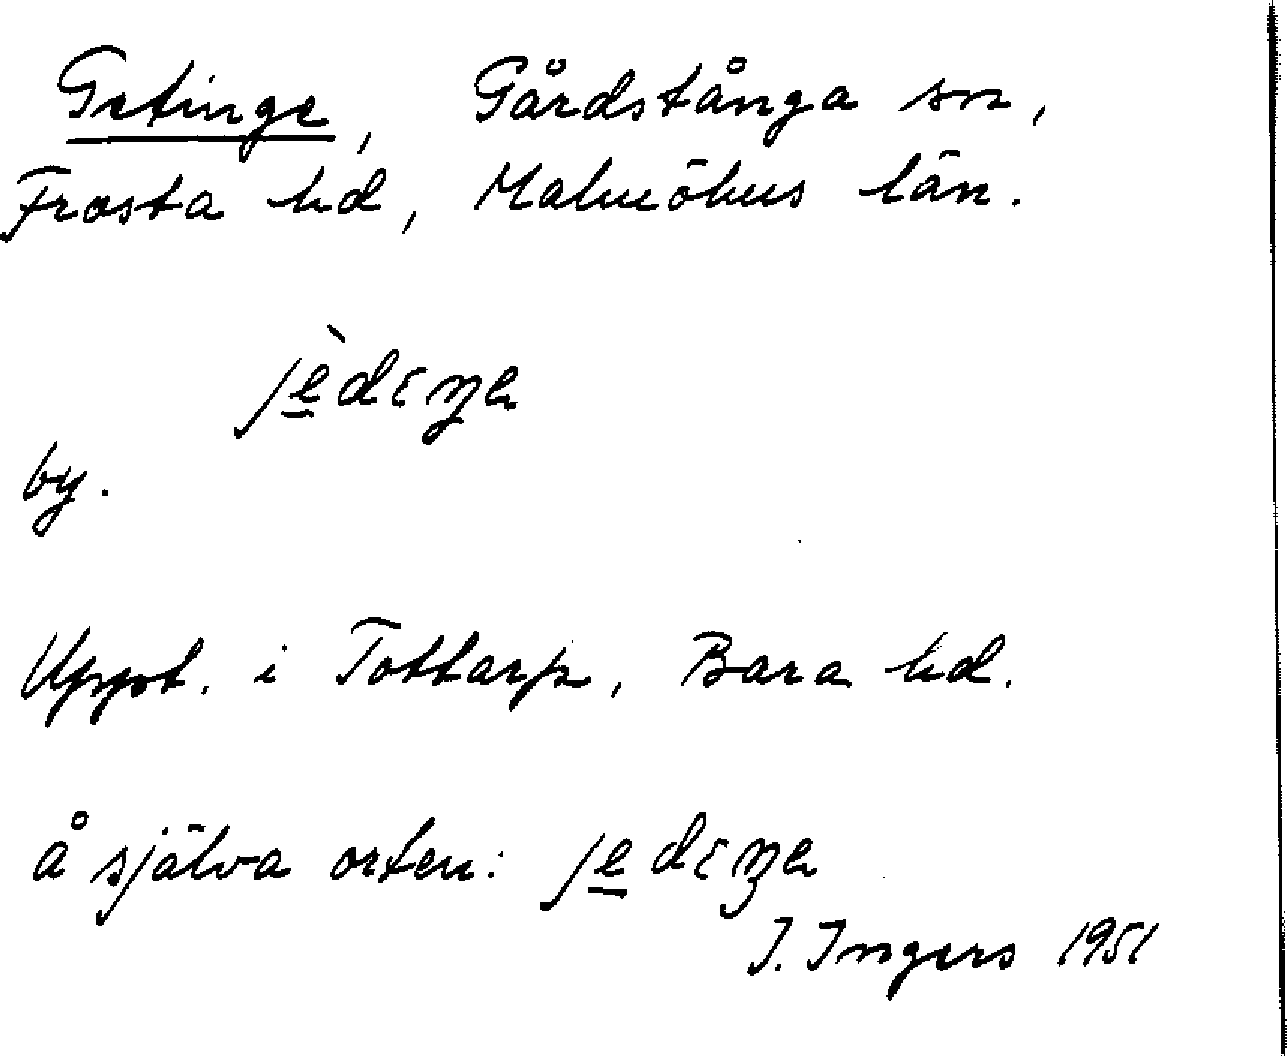 Getinge, Gårdstånga sn,
Frosta hd, Malmöhus län.
jèdɩŋə
by.
Uppt. i Tottarp, Bara hd.
å själva orten: jedɩŋə
I. Ingers 1951